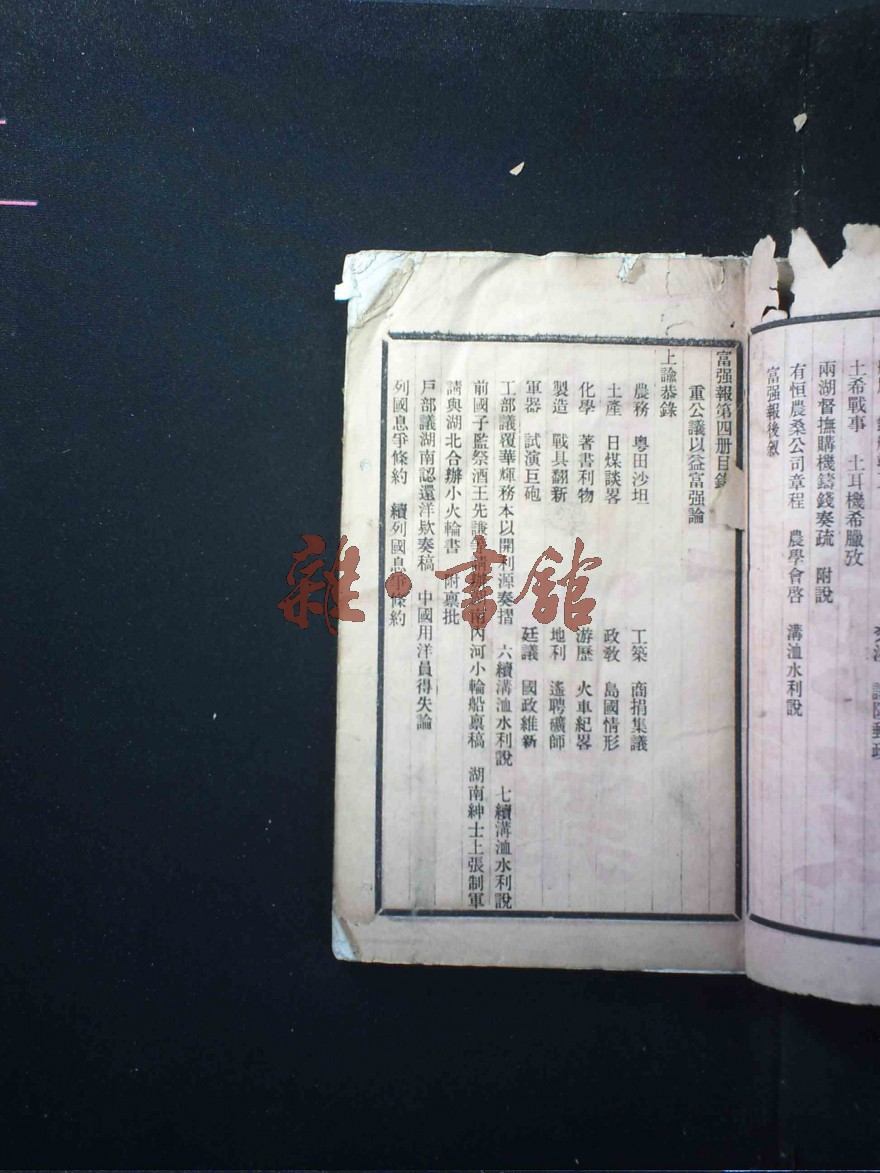 土希戰事　土耳機希臘攷
兩湖督撫購機鑄錢奏疏　附說
有恒農桑公司章程　農學會啓　溝洫水利說
富强報後敘
富强報第四册目錄
重公議以益富强論
上諭恭錄
農務　粵田沙坦　工築　商捐集議
土產　日煤談畧　政敎　島國情形
化學　著書利物　游歷　火車紀畧
製造　戰具翻新　地利　遙聘礦師
軍器　試演巨砲　廷議　國政維新
工部議覆華輝務本以開利源奏摺　六續溝洫水利說　七續溝洫水利說
前國子監祭酒王先謙內河小輪船稟稿　湖南紳士上張制軍
請與湖北合辦小火輪書　附稟批
戶部議湖南認還洋欵奏稿　中國用洋員得失論
列國息爭條約　續列國息爭條約
雜·書館